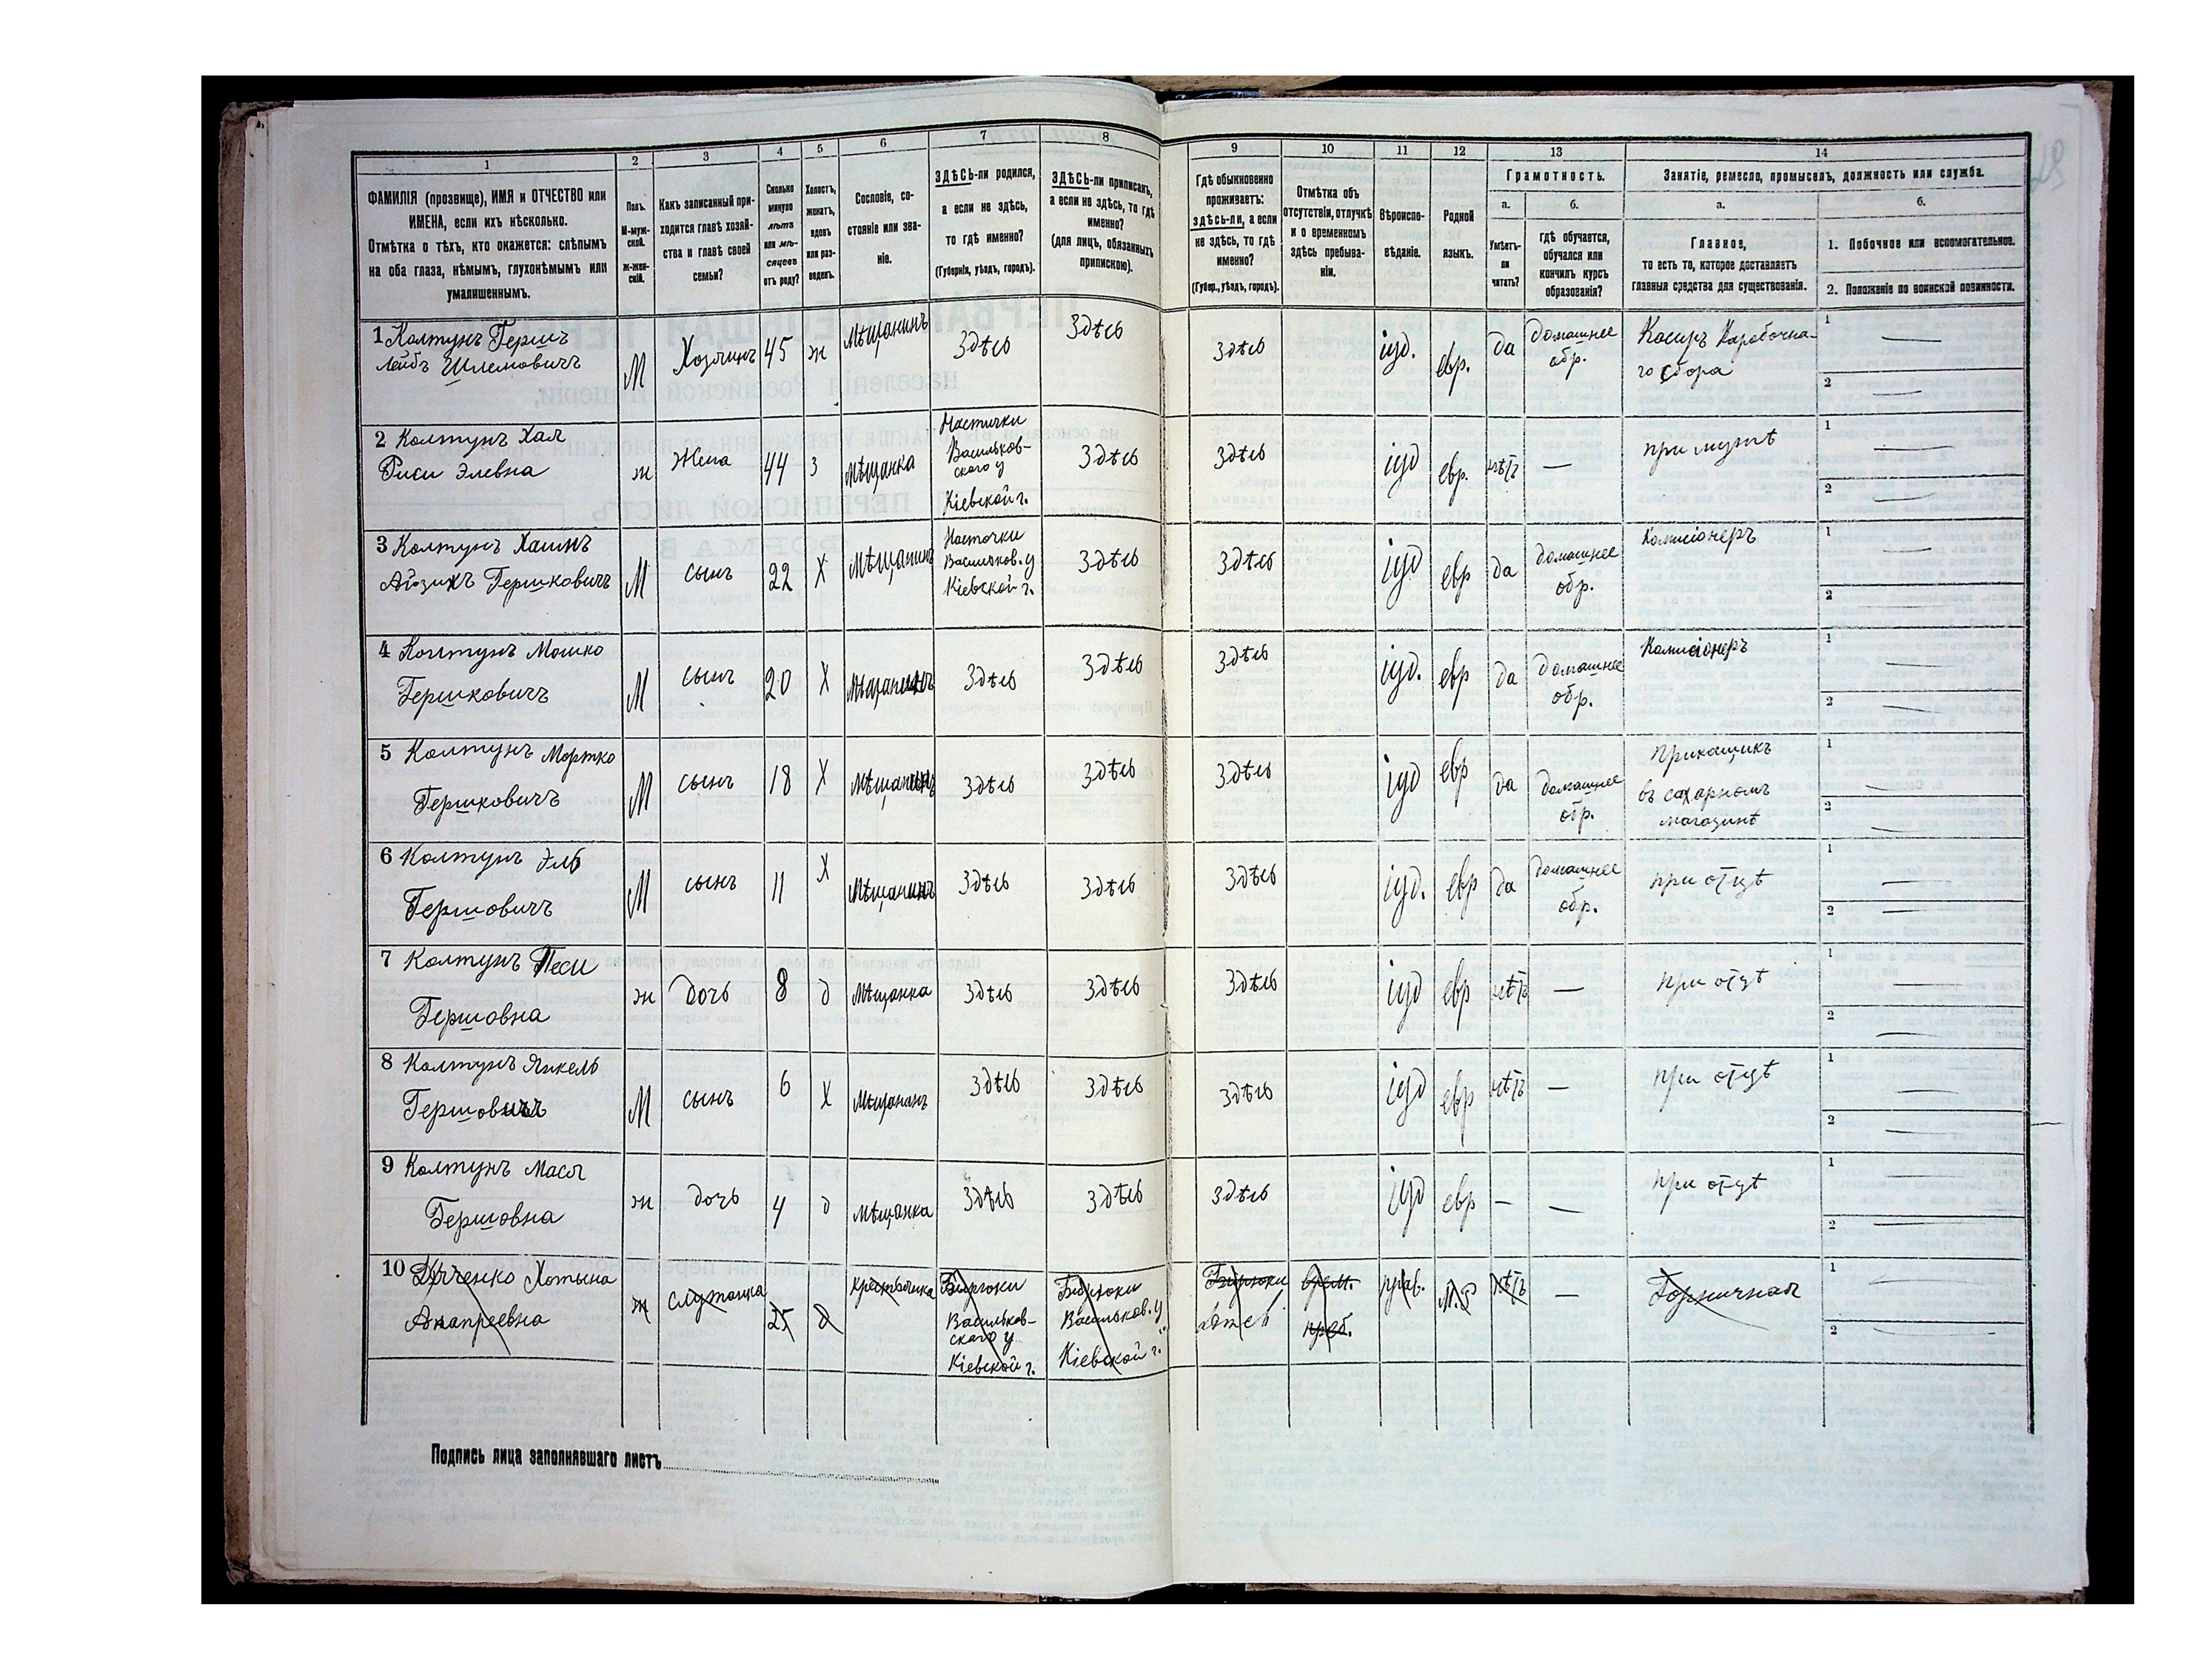 1
2
3
4
5
6
7
8
9
10
11
12
13
14
ФАМИЛІЯ (прозвище), ИМЯ и ОТЧЕСТВО или
ИМЕНА, если ихъ нѣсколько.
Отмѣтка о тѣхъ, кто окажется: слѣпымъ
на оба глаза, нѣмымъ, глухонѣмымъ или
умалишеннымъ.
Полъ.
М-муж-
ской.
ж-жен-
скій.
Какъ записанный при-
ходится главѣ хозяй-
ства и главѣ своей
семьи?
Сколько
минуло
лѣтъ
или мѣ-
сяцевъ
отъ роду?
Холостъ,
женатъ,
вдовъ
или раз-
веденъ.
Сословіе, со-
стояніе или зва-
ніе.
ЗДѢСЬ-ли родился,
а если не здѣсь,
то гдѣ именно?
(Губернія, уѣздъ, городъ).
ЗДѢСЬ-ли приписанъ,
а если не здѣсь, то гдѣ
именно?
(для лицъ, обязанныхъ
припискою).
Гдѣ обыкновенно
проживаетъ:
здѣсь-ли, а если
не здѣсь, то гдѣ
именно?
(Губер., уѣздъ, городъ).
Отмѣтка объ
отсутствіи, отлучкѣ
и о временномъ
здѣсь пребыва-
ніи.
Вѣроиспо-
вѣданіе.
Родной
языкъ.
Грамотность.
а.
Умѣетъ-
ли
читать?
б.
гдѣ обучается,
обучался или
кончилъ курсъ
образованія?
Занятіе, ремесло, промыселъ, должность или служба.
а.
Главное,
то есть то, которое доставляетъ
главныя средства для существованія.
б.
1. Побочное или вспомогательное.
2. Положеніе по воинской повинности.
1 Колтунъ Гершъ
Лейбъ Шлемовичъ
М
Хозяинъ
45
ж
Мѣщанинъ
Здѣсь
Здѣсь
Здѣсь
іуд.
евр.
да
домашнее
обр.
Касиръ Коробочна-
го сбора
1 —
2 —
2 Колтунъ Хая
Риси Элевна
ж
Жена
44
з
мѣщанка
Настички
Васильков-
ского у
Кіевской г.
Здѣсь
Здѣсь
іуд
евр.
нѣтъ
—
при мужѣ
1 —
2 —
3 Колтунъ Хаимъ
Айзикъ Гершковичъ
М
сынъ
22
Х
Мѣщанинъ
Насточки
Васильков. у
Кіевской г.
Здѣсь
Здѣсь
іуд
евр
да
домашнее
обр.
Комисіонеръ
1 —
2 —
4 Колтунъ Мошко
Гершковичъ
М
сынъ
20
Х
Мѣщанинъ
Здѣсь
Здѣсь
Здѣсь
іуд.
евр
да
домашнее
обр.
Комисіонеръ
1 —
2 —
5 Колтунъ Мортко
Гершковичъ
М
сынъ
18
Х
Мѣщанинъ
Здѣсь
Здѣсь
Здѣсь
іуд
евр
да
домашнее
обр.
Прикащикъ
въ сахарномъ
магазинѣ
1 —
2 —
6 Колтунъ Эль
Гершовичъ
М
сынъ
11
Х
Мѣщанинъ
Здѣсь
Здѣсь
Здѣсь
іуд.
евр
да
домашнее
обр.
при отцѣ
1 —
2 —
7 Колтунъ Песи
Гершовна
ж
дочь
8
д
мѣщанка
Здѣсь
Здѣсь
Здѣсь
іуд
евр
нѣтъ
—
при отцѣ
1 —
2 —
8 Колтунъ Янкель
Гершовичъ
М
сынъ
6
Х
Мѣщанинъ
Здѣсь
Здѣсь
Здѣсь
іуд
евр
нѣтъ
—
при отцѣ
1 —
2 —
9 Колтунъ Мася
Гершовна
ж
дочь
4
д
мѣщанка
Здѣсь
Здѣсь
Здѣсь
іуд
евр
—
—
при отцѣ
1 —
2 —
10
ж
служанка
25
д
Васильков-
ского у
Кіевской г.
Васильков. у
Кіевской г.
врем.
преб.
прав.
нѣтъ
—
Горничная
1 —
2 —
Подпись лица заполнявшаго листъ